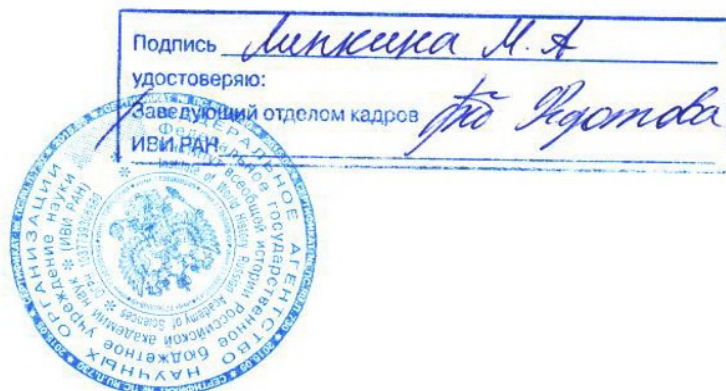 Подпись Липкина М. А
удостоверяю:
Заведующий отделом кадров Федотова
ИВИ РАН
ФЕДЕРАЛЬНОЕ АГЕНТСТВО НАУЧНЫХ ОРГАНИЗАЦИЙ
Федеральное государственное бюджетное учреждение науки
Институт всеобщей истории Российской академии наук * (ИВИ РАН)
Institute of World History Russian Academy of Sciences